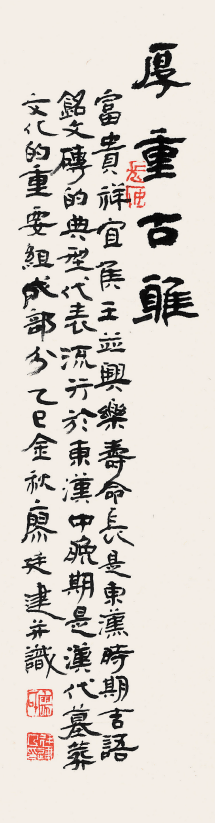 厚重古雅
富貴祥宜侯王並興樂壽命長是東漢時期吉語
銘文磚的典型代表流行於東漢中晚期是漢代墓葬
文化的重要組成部分乙巳金秋廖廷建并識